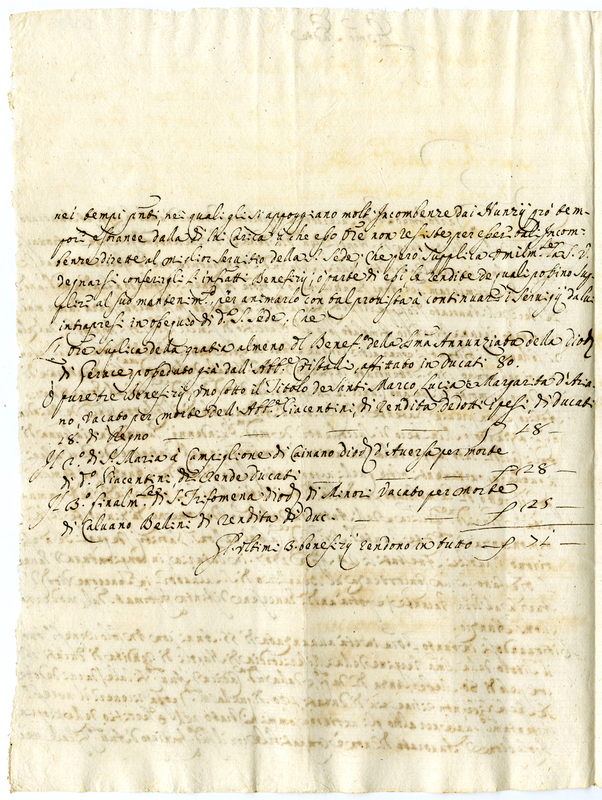 nei tempi pnti, nei quali gli si appoggiano molt'Incombenze dai Nunzij pro tem-
pore estranee dalla di lui carica, si che esso Ore non resiste per esser tal'Incom-
benze dirette al miglior servitio della S. Sede; Che però supplica umilmte la S. V.
degnarsi conferirgli infratti Benefizij, ò parte di essi le rendite de quali possino sup-
plire al suo mantenimto, per animarlo con tal provista à continuare i Servigij da lui
intrapresi in ossequio di da S. Sede; Che
Ore suplica della gratia almeno del Benefo della Sma Annunziata della Diog
di posseduto già dall'Abbe Cristaldi, affittato in Ducati 80.
E pure tre Benefizij, Uno sotto il Titolo de Santi Marco, Lucia e Margarita d'Aria-
no, Vacato per morte dell'Abbe Giacentini, di Rendita dedotti i pesi, di Ducati
48. di Regno — — — — 48 —
Il 2o di S. Maria à Campiglione di Caivano Diog d'Aversa per morte
di do Giacentini che Rende Ducati — 28 —
Il 3o finalmte di S. Trifomena Diog di Minori Vacato per morte
di Calvano Bellini di rendita di duc. — — — 25 —
Gl'ultimi 3. benefizij rendono in tutto — 71 —